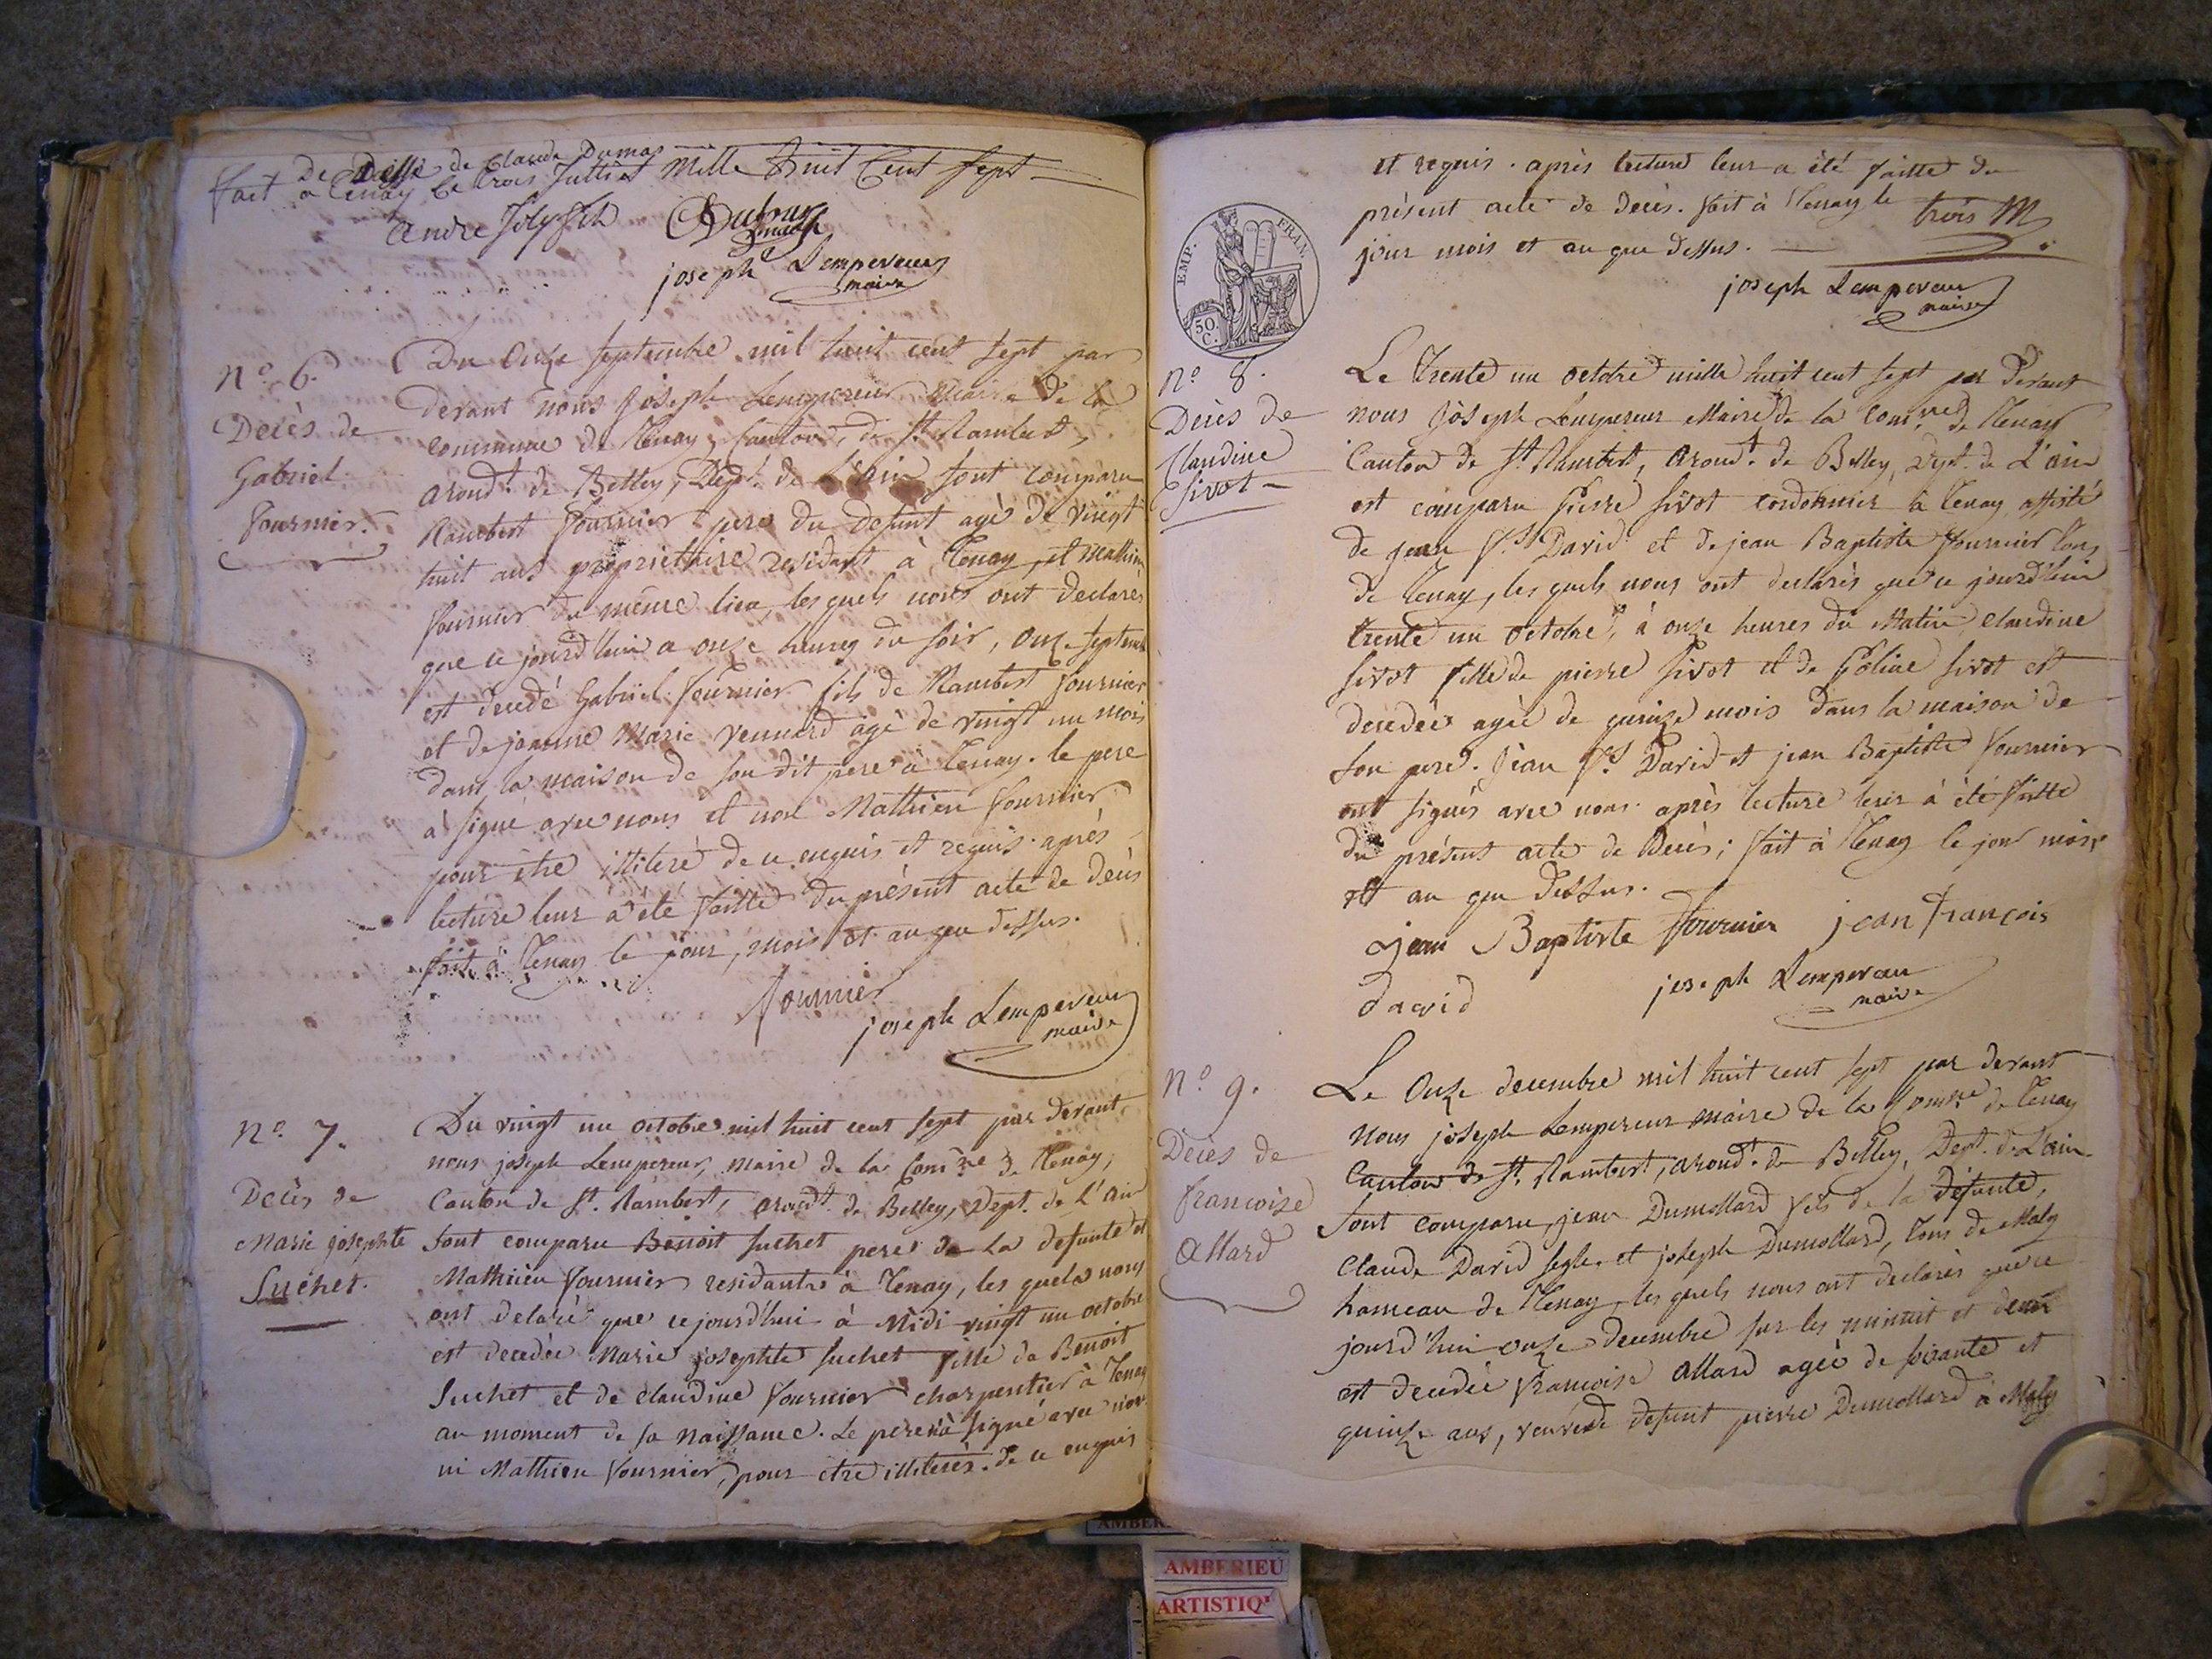 De Delle de Claude Dumas
fait a Tenay le trois Juillet mille huit Cent Sept
andre Joly fils Dubreuy
joseph Lempereur
maire
No. 6.
Decès de
Gabriel
Fournier.
Du Onze septembre mil huit cent sept par
devant nous Joseph Lempereur Maire de la
commune de Tenay, Canton de St. Rambert,
arondt. de Belley, Dept. de L'ain sont comparu
Rambert Fournier pere du defunt agé de vingt
huit ans propriettaire residant à Tenay, et Mathieu
Fournier du même lieu, les quels nous ont declarés
que ce jourd'hui a onze heures du soir, onze septembre
est decedé Gabriel Fournier fils de Rambert Fournier
et de jeanne Marie Vennard agé de vingt un mois
dans la maison de son dit pere à Tenay. le pere
à signé avec nous et non Mathieu Fournier
pour être illiteré de ce enquis et requis. après
lecture leur a été faitte du présent acte de decès
fait à Tenay le jour, mois et an que dessus.
Fournier
joseph Lempereur
maire
No. 7.
Decès de
Marie josephte
Suchet.
Du vingt un octobre mil huit cent sept par devant
nous joseph Lempereur, maire de la Comne. de Tenay,
Canton de St. Rambert, arondt. de Belley, Dept. de L'ain
sont comparu Benoit Suchet pere de la defunte et
Mathieu Fournier residants à Tenay, les quels nous
ont delaré que ce jourd'hui à Midi vingt un octobre
est decedée Marie josephte Suchet fille de Benoit
Suchet et de Claudine Fournier charpentier à Tenay
au moment de sa naissance. Le pere n'à signé avec nous
ni Mathieu Fournier, pour etre illiterés. de ce enquis
et requis. après lecture leur a été faitte du
présent acte de decès. fait à Tenay le trois M
jour mois et an que dessus.
joseph Lempereur
maire
EMP. FRAN.
50.
C.
No. 8.
Decès de
Claudine
Sivot
Le Trente un octobre mille huit cent sept par devant
nous Joseph Lempereur Maire de la Comne. de Tenay
Canton de St. Rambert, arondt. de Belley, Dept. de L'ain
est comparu Pierre Sivot cordonnier à Tenay assisté
de jean Fs. David et de jean Baptiste Fournier tous
de Tenay, les quels nous ont declarés que ce jourd'hui
trente un octobre, à onze heures du Matin Claudine
Sivot fille de pierre Sivot et de Sivot est
decedée agée de quinze mois dans la maison de
son pere. Jean Fs. David et jean Baptiste Fournier
ont signés avec nous après lecture leur à été faitte
du présent acte de Decès; fait à Tenay le jour mois
et an que dessus.
jean Baptiste Fournier jean françois
david joseph Lempereur
maire
No. 9.
Decès de
francoise
Allard
Le Onze decembre mil huit cent sept par devant
nous joseph Lempereur maire de la Comne. de Tenay
Canton de St. Rambert, arondt. de Belley, Dept. de L'ain
sont comparu, jean Dumollard fils de la defunte,
Claude David et joseph Dumollard, tous de Maly
hameau de Tenay, les quels nous ont declarés que ce
jourd'hui onze decembre sur les minuit et demi
est decedée francoise Allard agée de soixante et
quinze ans, veuve de defunt pierre Dumollard à Maly
AMBERIEU
ARTISTIQ'